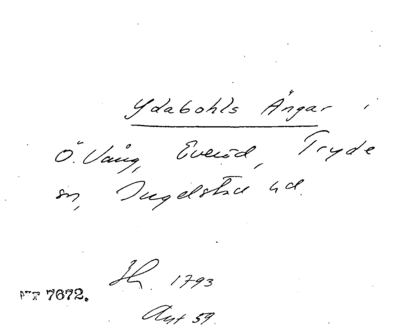 Ydabohls Ängar i
Ö. Vång, Everöd, Tryde
sn, Ingelstad hd.
1793
7672.
Akt 59